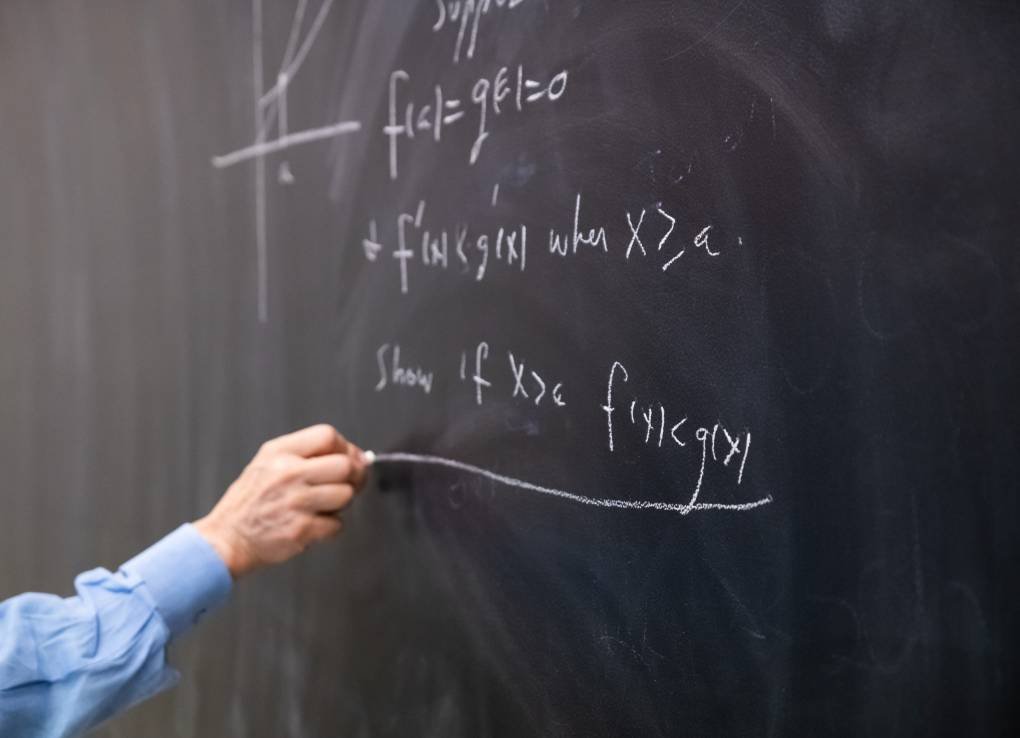 Suppose
a
f(a)=g(a)=0
+ f'(x)<g'(x) when x≥a.
Show if x>a f(x)<g(x)